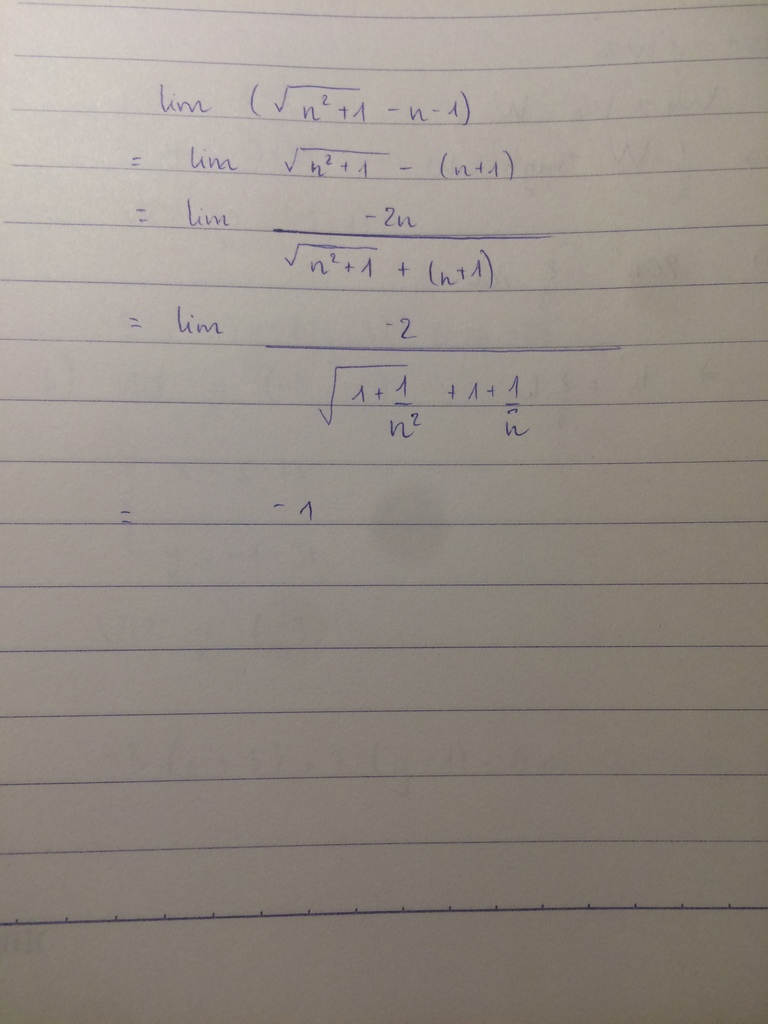 lim (√(n²+1) - n - 1)
= lim √(n²+1) - (n+1)
= lim -2n / (√(n²+1) + (n+1))
= lim -2 / (√(1 + 1/n²) + 1 + 1/n)
= -1